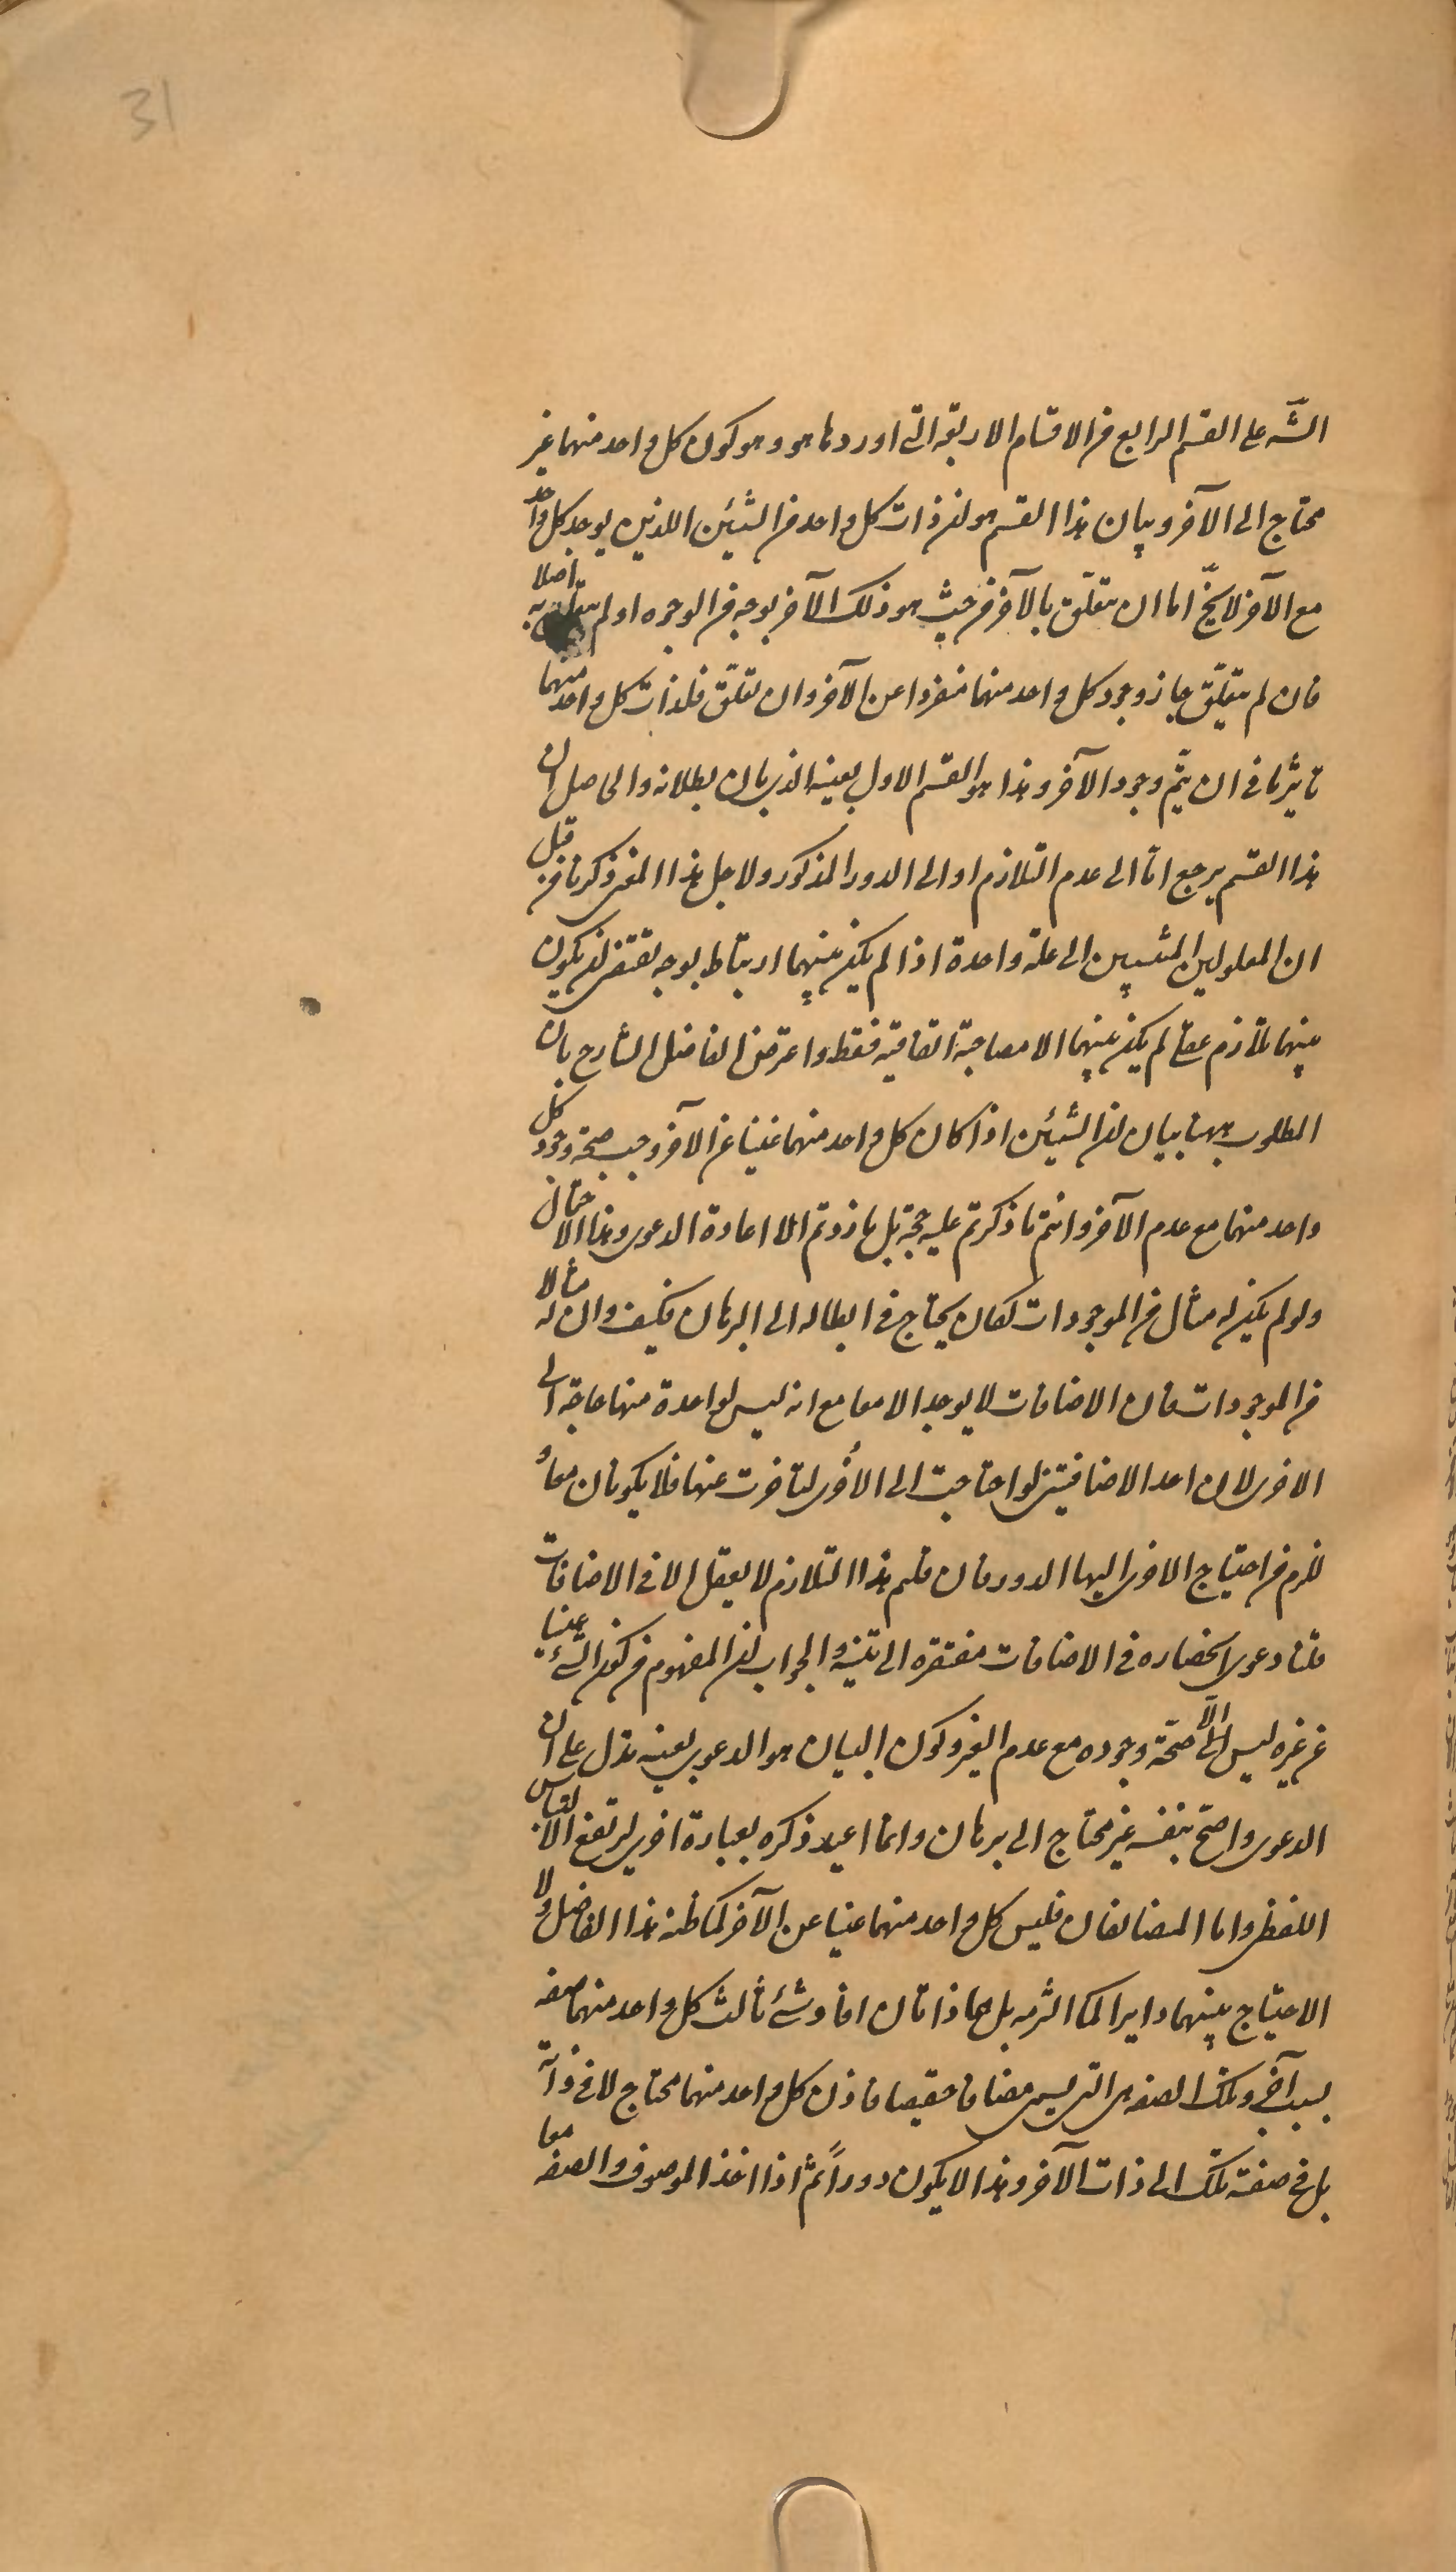 31
الشَّه على القسم الرابع من الاقسام الاربعة التى اوردها هو و هو كون كل واحد منهما غير
محتاج الى الآخر و بيان هذا القسم هو ان ذات كل واحد من الشيئين اللذين يوجد كل واحد
مع الآخر لا يخّ اما ان يتعلّق بالآخر من حيث هو ذلك الآخر بوجه من الوجوه او لم يتعلق به اصلا
فان لم يتعلّق جاز وجود كل واحد منهما منفردا عن الآخر و ان تعلّق فلذات كل واحد منهما
تأثير ما فى ان يتمّ وجود الآخر و هذا هو القسم الاول بعينه الذى بان بطلانه و الحاصل ان
هذا القسم يرجع اما الى عدم التلازم او الى الدور المذكور و لاجل هذا المعنى ذكرنا من قبل
ان المعلولين المنتسبين الى علة واحدة اذا لم يكن بينهما ارتباط بوجه يقتضى ان يكون
بينهما تلازم عقلى لم يكن بينهما الا مصاحبة اتفاقية فقط و اعترض الفاضل الشارح بان
المطلوب ههنا بيان ان الشيئين اذا كان كل واحد منهما غنيا عن الآخر وجب صحة وجود كل
واحد منهما مع عدم الآخر و انتم ما ذكرتم عليه حجة بل ما زدتم الا اعادة الدعوى و هذا الاحتمال
و لو لم يكن له مثال من الموجودات لكان يحتاج فى ابطاله الى البرهان فكيف و ان له مثالا
من الموجودات فان الاضافات لا يوجد الا معا مع انه ليس لواحدة منها حاجة الى
الاخرى لان احد الاضافيتين لو احتاجت الى الأخرى لتأخرت عنها فلا يكونان معا و
للزم من احتياج الاخرى اليها الدور فان قلتم هذا التلازم لا يعقل الا فى الاضافات
قلنا دعوى انحصاره فى الاضافات مفتقرة الى بينة و الجواب ان المفهوم من كون الشئ غنيا
عن غيره ليس الّا صحّة وجوده مع عدم الغير و كون البيان هو الدعوى بعينه يدل على ان
الدعوى واضح بنفسه غير محتاج الى برهان و انما اعيد ذكره بعبارة اخرى ليرتفع الالتباس
اللفظى و اما المضافان فليس كل واحد منهما غنيا عن الآخر كما ظنه هذا الفاضل و لا
الاحتياج بينهما دايرا كما الزمه بل هما ذاتان افاد شئ ثالث كل واحد منهما صفه
بسبب آخر و تلك الصفه هى التى يسمى مضافا حقيقيا فاذن كل واحد منهما محتاج لا فى ذاته
بل فى صفته تلك الى ذات الآخر و هذا لا يكون دوراً ثم اذا اخذ الموصوف و الصفه معا